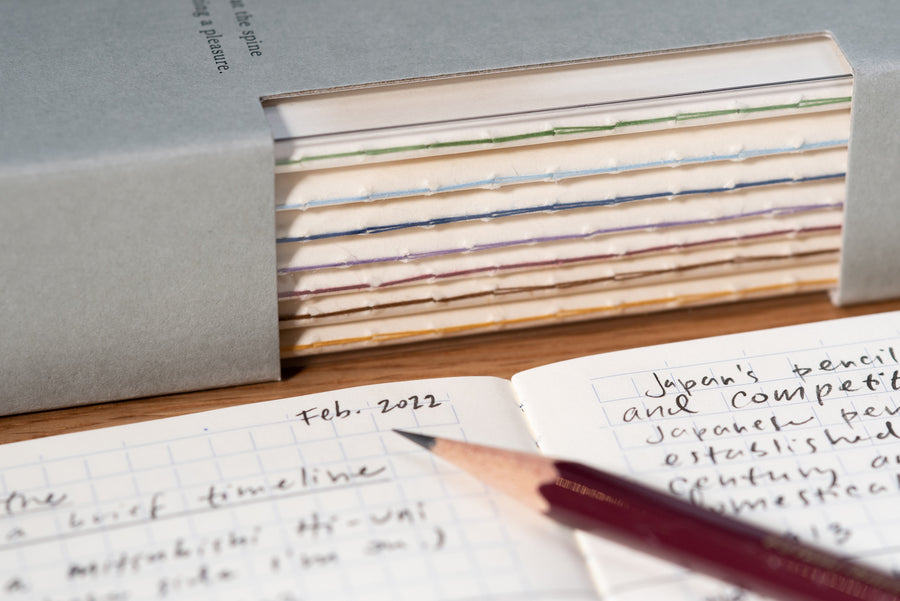 the spine
ing a pleasure.
Feb. 2022
the
a brief timeline
a mitsubishi Hi-uni
the side I'm on.)
Japan's pencil
and competit
Japanese pen
established
century a
domestical